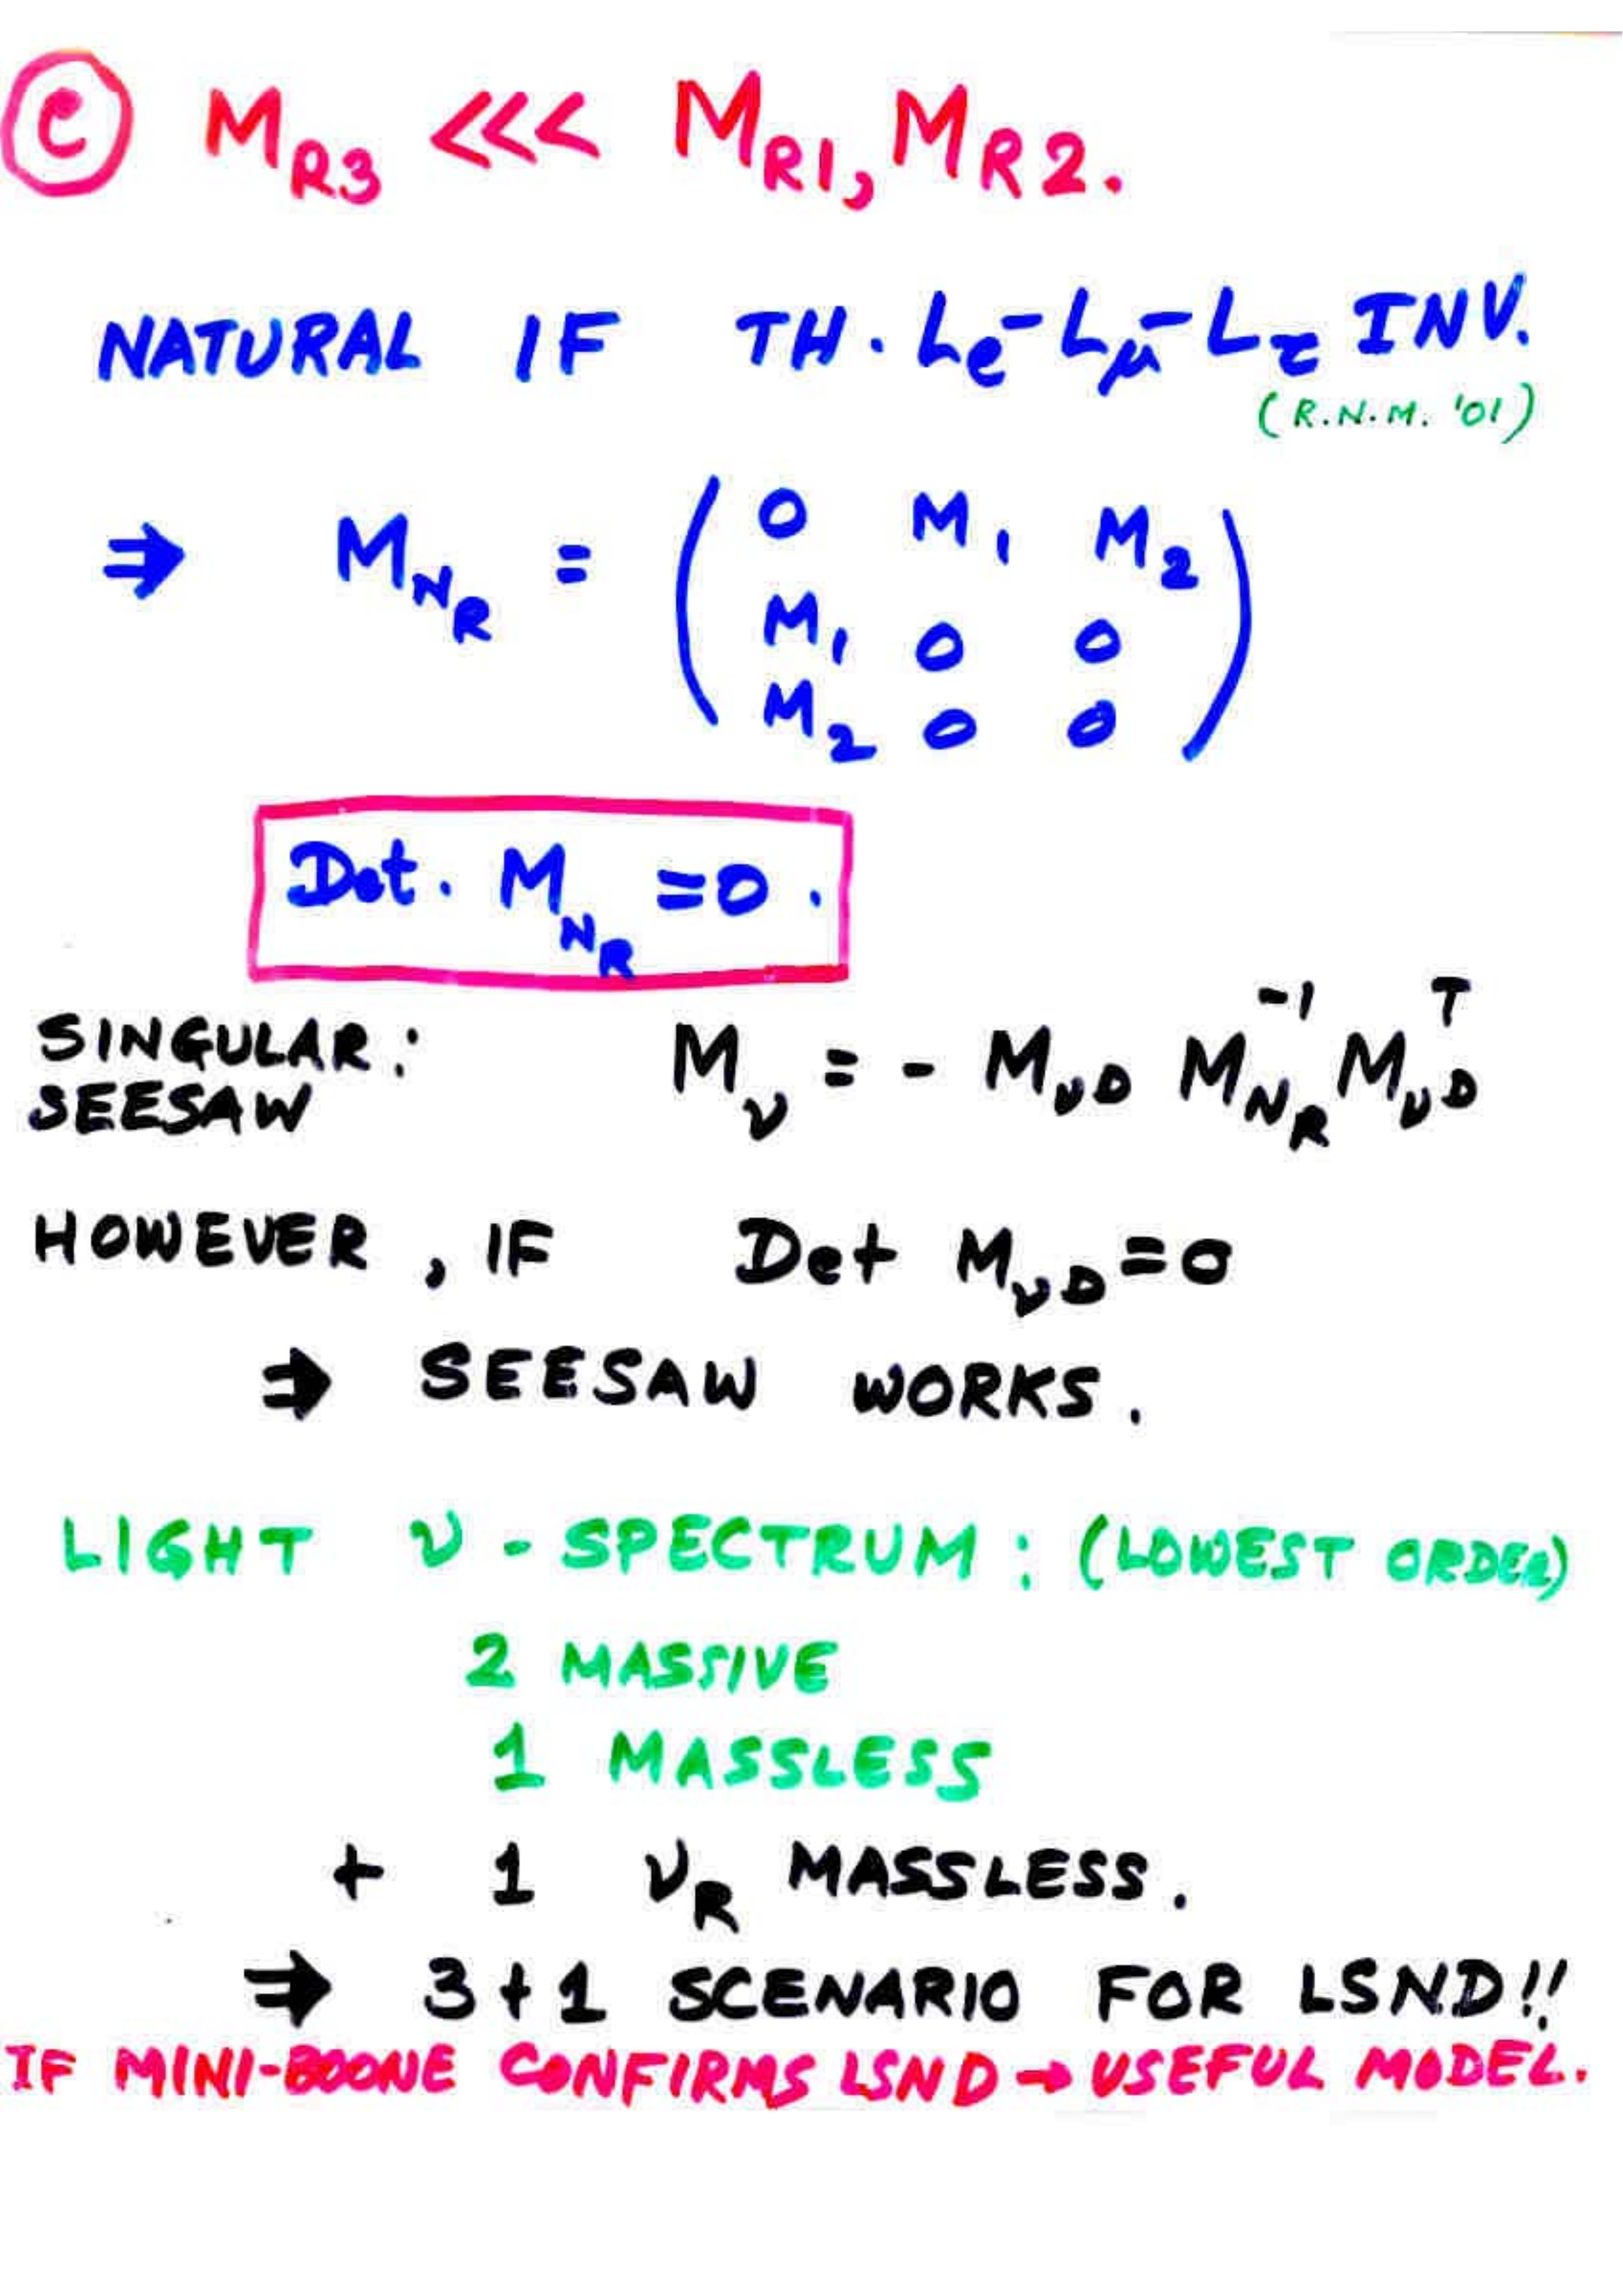 Ⓒ M_R3 <<< M_R1, M_R2.
NATURAL IF TH. L_e - L_μ - L_τ INV.
(R.N.M. '01)
⇒ M_N_R = ( 0 M_1 M_2
M_1 0 0
M_2 0 0 )
Det. M_N_R = 0 .
SINGULAR : M_ν = - M_νD M_N_R^-1 M_νD^T
SEESAW
HOWEVER , IF Det M_νD = 0
⇒ SEESAW WORKS .
LIGHT ν - SPECTRUM : (LOWEST ORDER)
2 MASSIVE
1 MASSLESS
+ 1 ν_R MASSLESS .
⇒ 3+1 SCENARIO FOR LSND!!
IF MINI-BOONE CONFIRMS LSND → USEFUL MODEL.